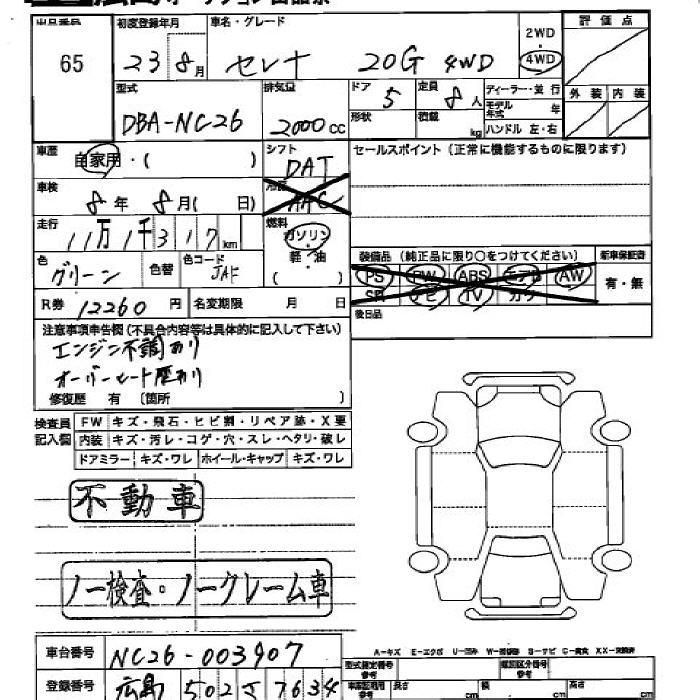 出品番号 初度登録年月 車名・グレード 2WD ・ 4WD 評価点
65 23 8月 セレナ 20G 4WD
型式 排気量 ドア 5 定員 8人 ディーラー・並行 外装 内装
DBA-NC26 2000cc 形状 積載 kg モデル年式 年
ハンドル 左・右
車歴 自家用・( ) シフト DAT セールスポイント(正常に機能するものに限ります)
車検 8年 8月( 日) 冷房 AAC
走行 11万1千317km 燃料 ガソリン・軽・油
装備品(純正品に限り○をつけてください) 新車保証書
色 グリーン 色替 色コード JAF
PS PW ABS エアB AW 有・無
SR ナビ TV カワ
R券 12260円 名変期限 月 日 後日品
注意事項申告欄(不具合内容等は具体的に記入して下さい)
エンジン不調あり
オーバーヒート歴あり
修復歴 有 〔箇所 〕
検査員記入欄 FW キズ・飛石・ヒビ割・リペア跡・X要
内装 キズ・汚レ・コゲ・穴・スレ・ヘタリ・破レ
ドアミラー キズ・ワレ ホイール・キャップ キズ・ワレ
不動車
ノー検査・ノークレーム車
車台番号 NC26-003907
型式指定番号 参考 類別区分番号 参考
登録番号 広島 502 さ 7634
長さ cm 幅 cm 高さ cm